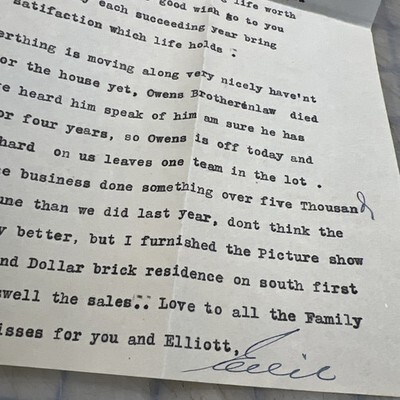 life worth
good wish go to you
each succeeding year bring
satifaction which life holds .
erthing is moving along very nicely haven't
or the house yet, Owens Brotherénlaw died
e heard him speak of him am sure he has
or four years, so Owens is off today and
hard on us leaves one team in the lot .
e business done something over five Thousand
une than we did last year, dont think the
y better, but I furnished the Picture show
nd Dollar brick residence on south first
swell the sales.. Love to all the Family
isses for you and Elliott,